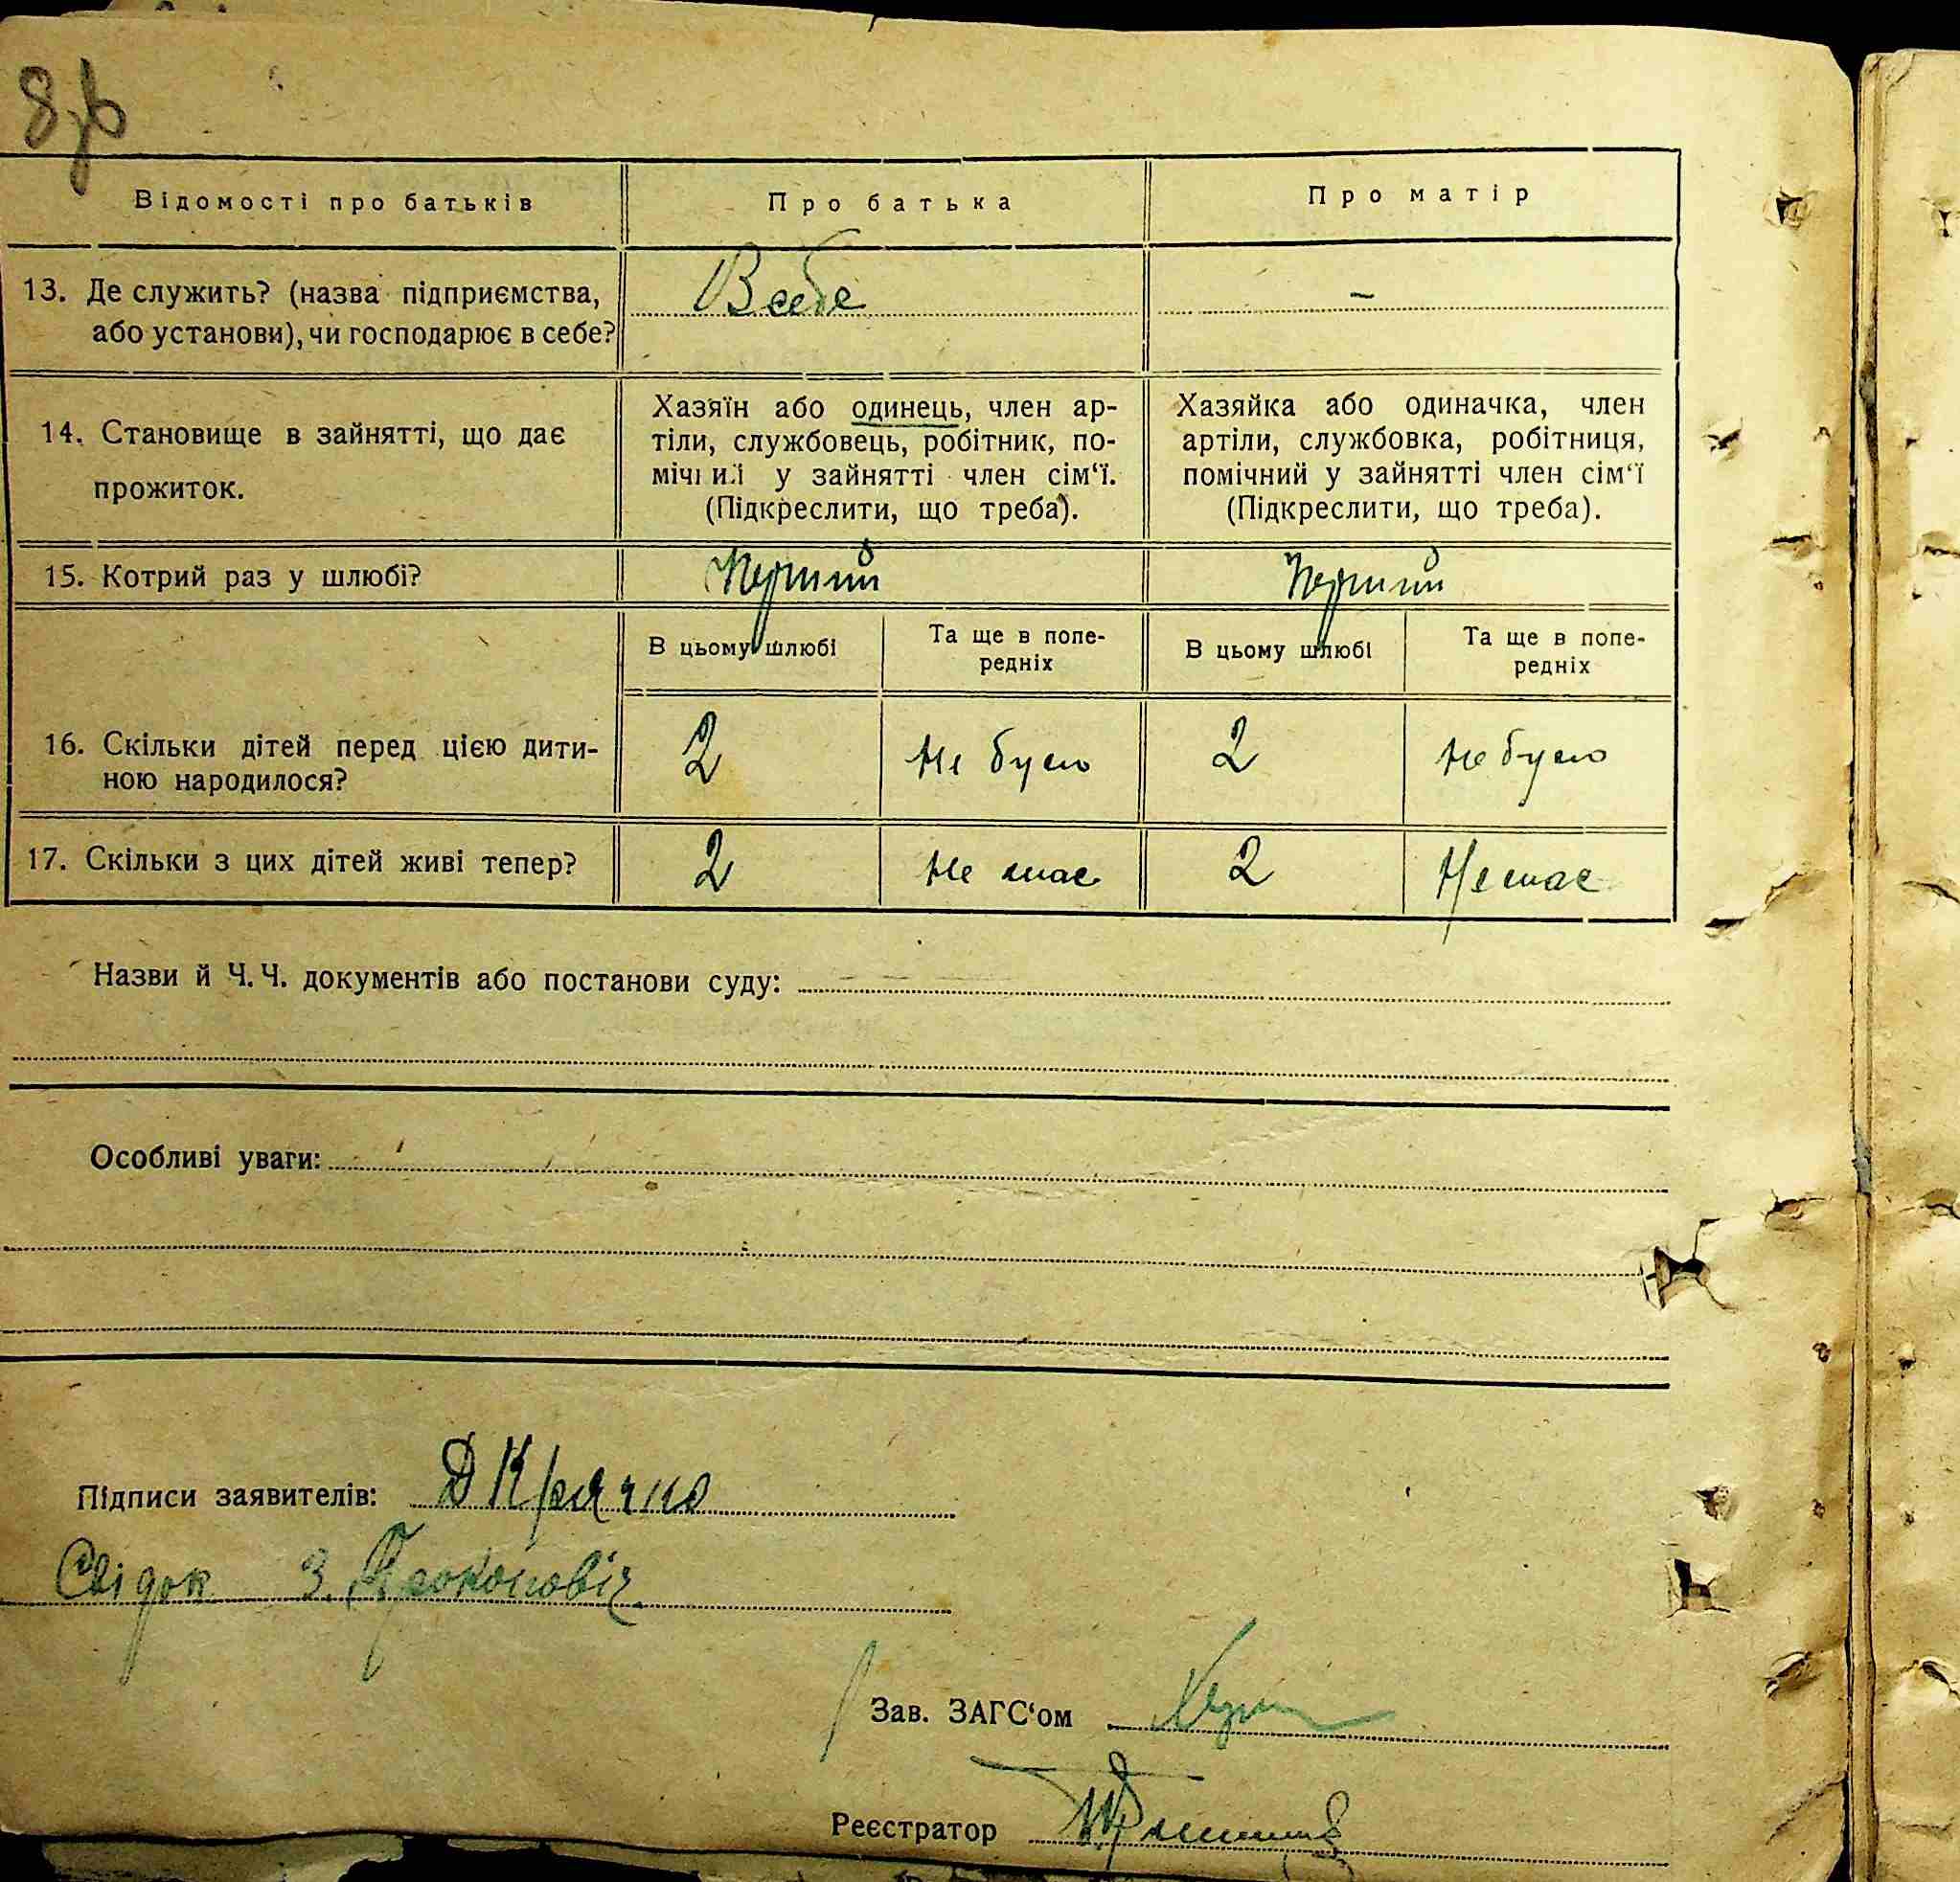 8зв
Відомості про батьків
Про батька
Про матір
13. Де служить? (назва підприємства,
або установи), чи господарює в себе?
В себе
–
14. Становище в зайнятті, що дає
прожиток.
Хазяїн або одинець, член ар-
тіли, службовець, робітник, по-
мічний у зайнятті член сім‘ї.
(Підкреслити, що треба).
Хазяйка або одиначка, член
артіли, службовка, робітниця,
помічний у зайнятті член сім‘ї
(Підкреслити, що треба).
15. Котрий раз у шлюбі?
Перший
Перший
В цьому шлюбі
Та ще в попе-
редніх
В цьому шлюбі
Та ще в попе-
редніх
16. Скільки дітей перед цією дити-
ною народилося?
2
Не було
2
Не було
17. Скільки з цих дітей живі тепер?
2
Не має
2
Немає
Назви й Ч. Ч. документів або постанови суду:
Особливі уваги:
Підписи заявителів: Д Крячко
Свідок З. Прокоповіч
Зав. ЗАГС‘ом
Реєстратор